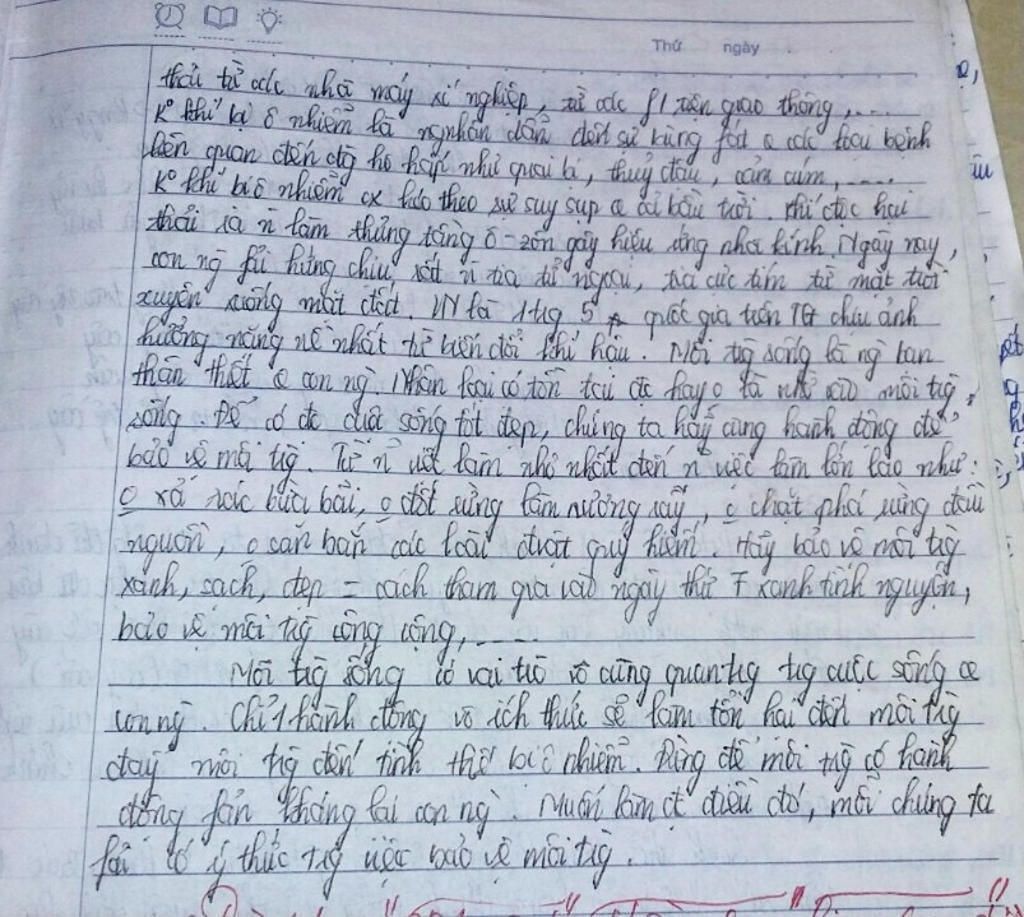 Thứ ngày
thải từ các nhà máy xí nghiệp, từ các p/tiện giao thông,....
K° khí bị ô nhiễm là ngnhân dẫn đến sự bùng phát ε các loại bệnh
liên quan đến đg hô hấp như quai bị, thuỷ đậu, cảm cúm,....
K° khí bị ô nhiễm cx kéo theo sự suy sụp ε cả bầu trời. Khí độc hại
thải ra n̄ làm thủng tầng ô-zôn gây hiệu ứng nhà kính. Ngày nay,
con ng fải hứng chịu rất n̄ tia tử ngoại, tia cực tím từ mặt trời
xuyên xuống mặt đất. VN là 1 trg 5 quốc gia trên TG chịu ảnh
hưởng nặng nề nhất từ biến đổi khí hậu. Môi trg sống là ng bạn
thân thiết ε con ng. Nhân loại có tồn tại đc hay o là nhờ vào môi trg
sống. Để có đc cuộc sống tốt đẹp, chúng ta hãy cùng hành động để
bảo vệ môi trg. Từ n̄ việc làm nhỏ nhất đến n̄ việc làm lớn lao như:
o xả rác bừa bãi, o đốt rừng làm nương rẫy, o chặt phá rừng đầu
nguồn, o săn bắn các loài đvật quý hiếm. Hãy bảo vệ môi trg
xanh, sạch, đẹp = cách tham gia vào ngày thứ 7 xanh tình nguyện,
bảo vệ môi trg công cộng,...
Môi trg sống có vai trò vô cùng quan trg trg cuộc sống ε
con ng. Chỉ 1 hành động vô ích thức sẽ làm tổn hại đến môi trg
đẩy môi trg đến tình thế bị ô nhiễm. Đừng để môi trg có hành
động fản kháng lại con ng. Muốn làm đc điều đó, mỗi chúng ta
fải có ý thức trg việc bảo vệ môi trg.